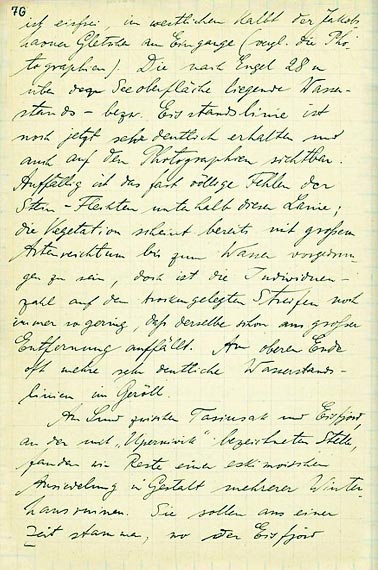 76
ist eisfrei, im westlichen kalbt der Jakobs-
havner Gletscher am Eingange (vergl. die Pho-
tographien). Die nach Engel 28 m
über der Seeoberfläche liegende Wasser-
stands- bezw. Eisstandslinie ist
noch jetzt sehr deutlich erhalten und
auch auf den Photographien sichtbar.
Auffällig ist das fast völlige Fehlen der
Stein-Flechten unterhalb dieser Linie;
die Vegetation scheint bereits mit großem
Artenreichtum bis zum Wasser vorgedrun-
gen zu sein, doch ist die Individuen-
zahl auf den trockengelegten Streifen noch
immer so gering, daß derselbe schon aus großer
Entfernung auffällt. Am oberen Ende
oft mehre sehr deutliche Wasserstands-
linien im Geröll.
Am Sund zwischen Tasiusak und Eisfjord,
an der mit „Upernivik“ bezeichneten Stelle,
fanden wir Reste einer eskimoischen
Ansiedelung in Gestalt mehrerer Winter-
hausruinen. Sie sollen aus einer
Zeit stammen, wo der Eisfjord